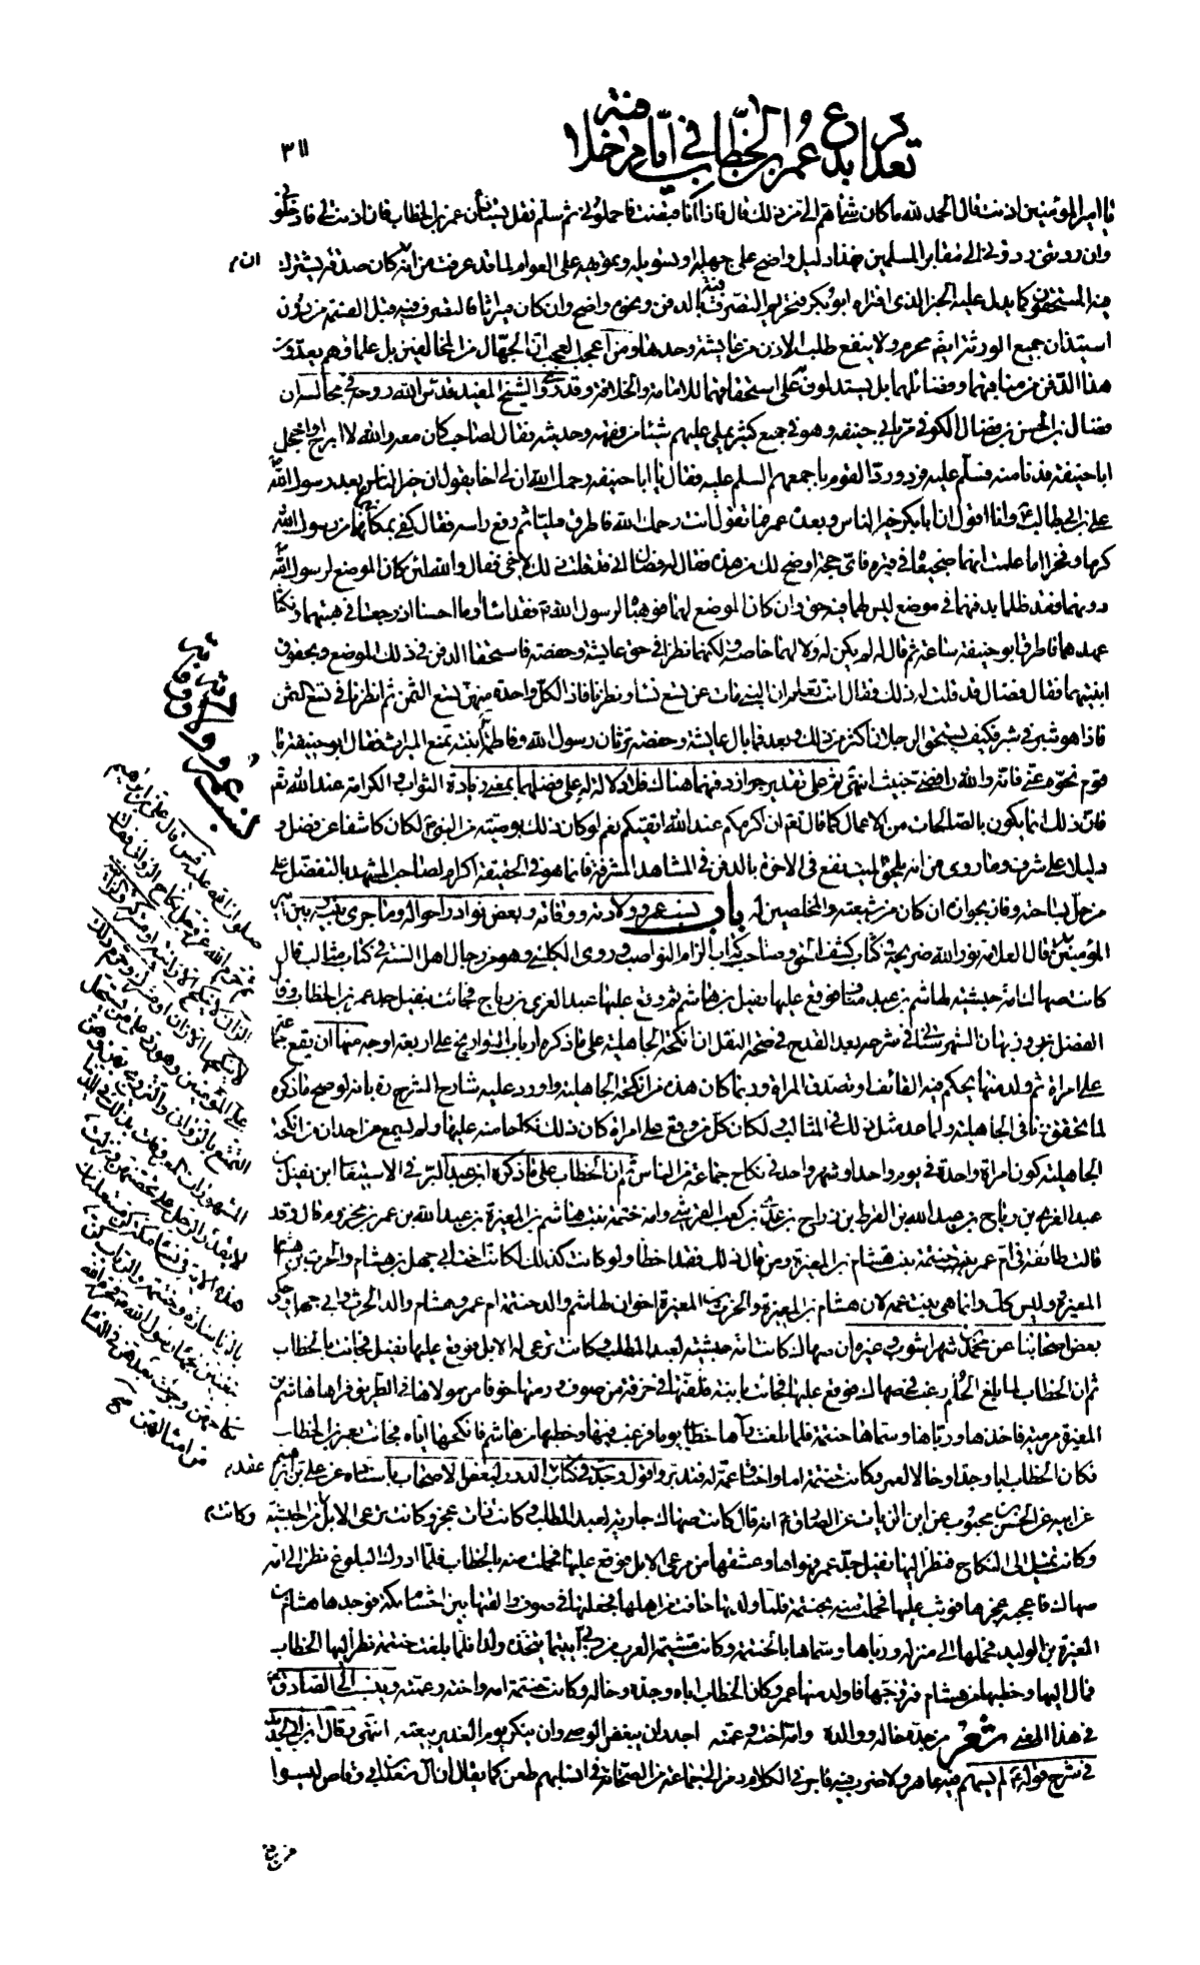 تعداد بدع عمر بن الخطاب في أيام خلافته
٣١١
يا امير المؤمنين اذنت قال الحمد لله ما كان شئ اهم الي من ذلك قال فاذا انا قبضت فاحملوني ثم سلم فقل يستأذن عمر بن الخطاب فان اذنت لي فادخلوني
وان ردتني ردوني الى مقابر المسلمين فهذا دليل واضح على جهله او تسويله وتمويهه على العوام لما قد عرفت من انه كان صدقة يشترك
ان م
فيه المستحقون كما يدل عليه الخبر الذي افتراه ابو بكر فتحريم التصرف فيه بالدفن ونحوه واضح وان كان ميراثا فالتصرف فيه قبل القسمة من دون
استيذان جميع الورثة ايضا محرم ولا ينفع طلب الاذن من عايشة وحدها ومن اعجب العجب ان الجهال من المخالفين بل علماؤهم يعدون
هذا الدفن من مناقبهما وفضائلهما بل يستدلون على استحقاقهما للامامة والخلافة وقد روى الشيخ المفيد قدس الله روحه في مجالسه ان
فضال بن الحسن بن فضال الكوفي مر بابي حنيفه وهو في جمع كثير يملي عليهم شيئا من فقهه وحديثه فقال لصاحب كان معه والله لا ابرح او اخجل
ابا حنيفة فدنا منه فسلم عليه فرد ورد القوم باجمعهم السلم عليه فقال يا ابا حنيفه رحمك الله ان لي اخا يقول ان خير الناس بعد رسول الله
علي بن ابي طالب وانا اقول ان ابا بكر خير الناس وبعده عمر فما تقول انت رحمك الله فاطرق مليا ثم رفع راسه فقال كفى بمكانهما من رسول الله
كرما وفخرا اما علمت انهما ضجيعاه في قبره فاي حجة اوضح لك من هذه فقال له فضال اني قد قلت ذلك لاخي فقال والله لئن كان الموضع لرسول الله
دونهما فقد ظلما بدفنهما في موضع ليس لهما فيه حق وان كان الموضع لهما فوهباه لرسول الله فقد اساءا وما احسنا اذ رجعا في هبتهما ونكثا
عهدهما فاطرق ابو حنيفة ساعة ثم قال له لم يكن له ولا لهما خاصة ولكنهما نظرا في حق عايشة وحفصة فاستحقا الدفن في ذلك الموضع وبحقوق
ابنتيهما فقال فضال قد قلت له ذلك فقال انت تعلم ان النبي مات عن تسع نساء ونظرنا فاذا لكل واحدة منهن تسع الثمن ثم نظرنا في تسع الثمن
فاذا هو شبر في شبر فكيف يستحق الرجلان اكثر من ذلك وبعد فما بال عايشة وحفصة ترثان رسول الله وفاطمة ابنته تمنع الميراث فقال ابو حنيفة يا
قوم نحوه عني فانه والله رافضي خبيث انتهى ثم على تقدير جواز دفنهما هناك فلا دلالة له على فضلهما بمعنى زيادة الثواب والكرامة عند الله تع
فان ذلك انما يكون بالصالحات من الاعمال كما قال تع ان اكرمكم عند الله اتقيكم نعم لو كان ذلك بوصيته من النبي لكان كاشفا عن فضل و
دليلا على شرف وما روى من انه يلحق الميت نفع في الاخرة بالدفن في المشاهد المشرفة فانما هو في الحقيقة اكرام لصاحب المشهد بالتفضل على
من حل بساحته وفاز بجواره ان كان من شيعته والمخلصين له باب نسب عمر وولادته ووفاته وبعض نوادر احواله وما جرى بينه وبين امير
المؤمنين قال العلامة نور الله ضريحه في كتاب كشف الحق وصاحب كتاب الزام النواصب وروى الكلبي وهو من رجال اهل السنة في كتاب مثالب قال
كانت صهاك امة حبشية لهاشم بن عبد مناف فوقع عليها نفيل بن هاشم ثم وقع عليها عبد العزى بن رياح فجائت بنفيل جد عمر بن الخطاب وقال
الفضل بن روزبهان الشهرستاني في شرحه بعد القدح في صحة النقل ان انكحة الجاهلية على ما ذكره ارباب التواريخ على اربعة اوجه منها ان يقع جماعة
على امراة ثم ولد منها يحكم فيه القائف او تصدق المراة وربما كان هذه من انكحة الجاهلية واورد عليه شارح الشرح ره بانه لو صح ما ذكره
لما تحقق زنا في الجاهلية ولما عد مثل ذلك في المثالب ولكان كل من وقع على امراة كان ذلك نكاحا منه عليها ولم يسمع من احد ان من انكحة
الجاهلية كون امراة واحدة في يوم واحد او شهر واحد في نكاح جماعة من الناس ثم ان الخطاب على ما ذكره ابن عبد البر في الاستيعاب ابن نفيل بن
عبد العزى بن رياح بن عبد الله بن القرط بن زراح بن عدي بن كعب القرشي وامه حنتمة بنت هاشم بن المغيرة بن عبد الله بن عمر بن مخزوم قال وقد
قالت طائفة في ام عمر حنتمة بنت هشام بن المغيرة ومن قال ذلك فقد اخطأ ولو كانت كذلك لكانت اخت ابي جهل بن هشام والحرث بن هشام
المغيرة وليس كك وانما هي بنت عمه لان هشام بن المغيرة والحرث بن المغيرة اخوان لهاشم والد حنتمة ام عمر وهشام والد الحرث وابي جهل وحكى
بعض اصحابنا عن محمد بن شهراشوب وغيره ان صهاك كانت امة حبشية لعبد المطلب وكانت ترعى له الابل فوقع عليها نفيل فجائت بالخطاب
ثم ان الخطاب لما بلغ الحلم رغب في صهاك فوقع عليها فجائت بابنة فلفتها في خرقة من صوف ورمتها خوفا من مولاها في الطريق فراها هاشم بن
المغيرة مرمية فاخذها ورباها وسماها حنتمة فلما بلغت راها خطاب يوما فرغب فيها وخطبها من هاشم فانكحها اياه فجائت بعمر بن الخطاب
فكان الخطاب ابا وجدا وخالا لعمر وكانت حنتمة اما واختا وعمة له فتدبر واقول وجدت في كتاب عقد الدرر لبعض الاصحاب باسناده عن علي بن ابراهيم
عقد م
عن ابيه عن الحسن بن محبوب عن ابن الزيات عن الصادق انه قال كانت صهاك جارية لعبد المطلب وكانت ذات عجز وكانت ترعى الابل من الحبشة
وكانت م
وكانت تميل الى النكاح فنظر اليها نفيل جد عمر فهواها وعشقها من مرعى الابل فوقع عليها فحملت منه بالخطاب فلما ادرك البلوغ نظر الى امه
صهاك فاعجبه عجزها فوثب عليها فحملت منه بحنتمة فلما ولدتها خافت من اهلها فجعلتها في صوف والقتها بين احشام مكة فوجدها هشام بن
المغيرة بن الوليد فحملها الى منزله ورباها وسماها بالحنتمة وكانت مشيمة العرب من ربى يتيما يتخذه ولدا فلما بلغت حنتمة نظر اليها الخطاب
فمال اليها وخطبها من هشام فتزوجها فاولد منها عمر وكان الخطاب اباه وجده وخاله وكانت حنتمة امه واخته وعمته وينسب الى الصادق
في هذا المعنى شعر من جده خاله ووالده وامه اخته وعمته اجدر ان يبغض الوصي وان ينكر يوم الغدير بيعته انتهى وقال ابن ابي الحديد
في شرح قوله لم يسهم فيه عاهر ولا ضرب فيه فاجر في الكلام رمز الى جماعة من الصحابة في انسابهم طعن كما يقال ان آل سعد بن ابي وقاص ليسوا
من بني
نسب عمر وولادته ووفاته
صلوات الله عليه